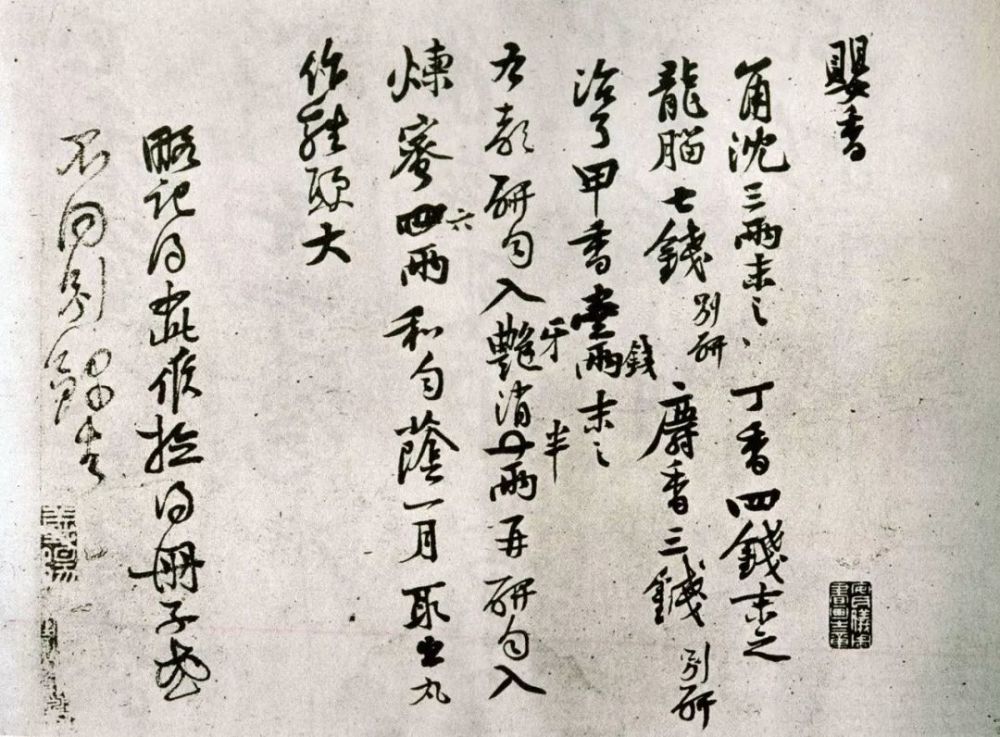 嬰香
角沈三兩末之丁香四錢末之
龍腦七錢別研麝香三錢別研
治了甲香壹兩錢末之
右都研勻入艷牙消半兩再研勻入
煉蜜四六兩和勻蔭一月取出丸
作雞頭大
略記得如此候撿得冊子或
不同別錄去